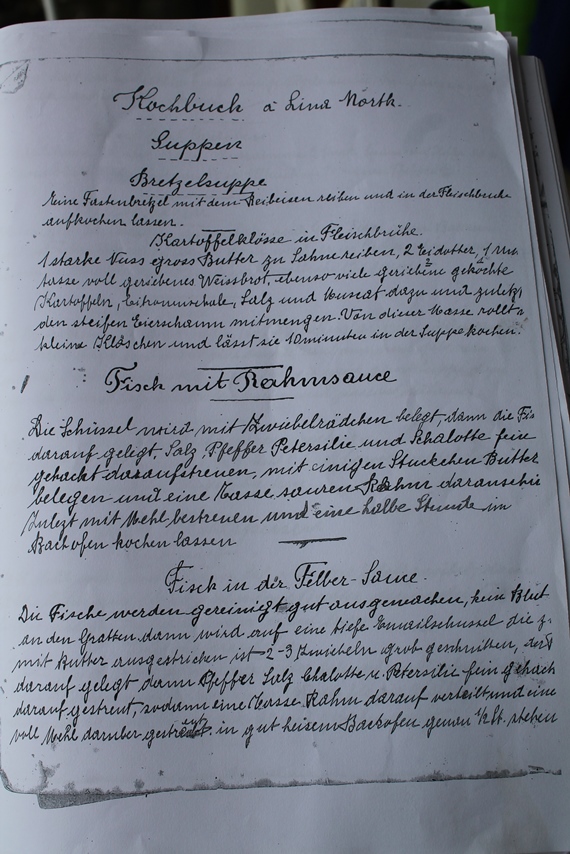 Kochbuch à Lina North.
Suppen
Bretzelsuppe
Eine Fastenbretzel mit dem Reibeisen reiben und in der Fleischbrühe
aufkochen lassen.
Kartoffelklösse in Fleischbrühe.
1 starke Nuss gross Butter zu Sahne reiben, 2 Eidotter, 1
tasse voll geriebenes Weissbrot, ebenso viele geriebene gekochte
Kartoffeln, Citronenschale, Salz und Muscat dazu und zuletzt
den steifen Eierschaum mitmengen. Von dieser Masse rollt
kleine Klöschen und lässt sie 10 minuten in der Suppe kochen.
Fisch mit Rahmsauce
Die Schüssel wird mit Zwiebelrädchen belegt, dann die Fis
darauf gelegt Salz, Pfeffer Petersilie und Schalotte fein
gehackt daraufstreuen, mit einigen Stückchen Butter
belegen und eine Tasse sauren Rahm daranschü
Zuletzt mit Mehl bestreuen und eine halbe Stunde im
Backofen kochen lassen
Fisch in der Felber-Sauce.
Die Fische werden gereinigt gut ausgewachen, kein Blut
an den Gratten dann wird auf eine tiefe Emailschüssel die z.
mit Butter ausgestrichen ist 2-3 Zwiebeln grob geschnitten,
darauf gelegt dann Pfeffer Salz Chalotte u. Petersilie fein gehack
darauf gestreut, sodann eine Tasse Rahm darauf verteilt und eine
voll Mehl darüber in gut heisem Backofen genau 1/2 St. stehen